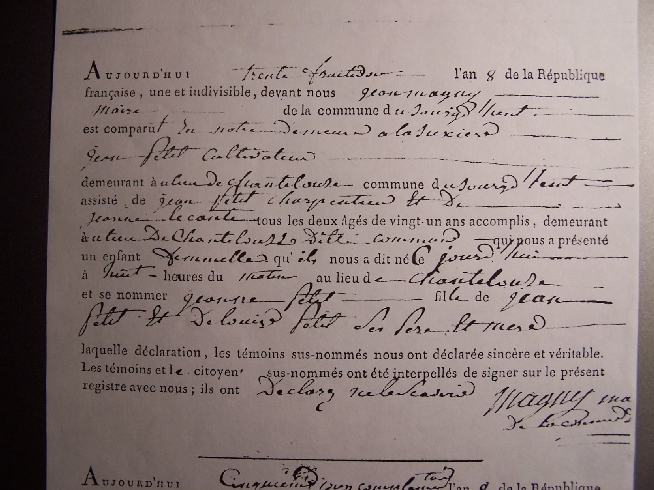 AUJOURD'HUI trente fructidor l'an 8 de la République
française, une et indivisible, devant nous jean magny
maire de la commune du
est comparu en notre demeure a la
jean petit cultivateur
demeurant à au lieu de chantelouse commune du
assisté de jean petit charpentier Et De
jeanne leconte tous les deux âgés de vingt-un ans accomplis, demeurant
à au lieu De Chantelouse Ditte commune qui nous a présenté
un enfant femmelle qu'ils nous a dit né Ce jourd'hui
à huit heures du matin au lieu de chantelouse
et se nommer jeanne petit fille de jean
petit Et De louise petit Ses pere Et mere
laquelle déclaration, les témoins sus-nommés nous ont déclarée sincère et véritable.
Les témoins et le citoyen sus-nommés ont été interpellés de signer sur le présent
registre avec nous; ils ont
Magny
De la commune
AUJOURD'HUI Cinquieme jour complementaire l'an 8 de la République